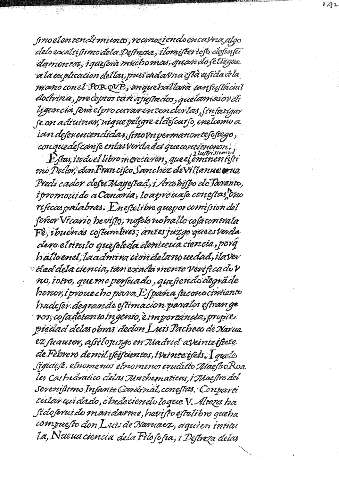 sino el entendimiento, reconociendo en causa, algo
de lo exaltissimo de la Destreza, i lo misterioso de sus fun
damentos, i que seria mucho mas, quando se llegue
a la explicacion dellas, pues cada una està asida de la
mano con el PORQUE, en que hallarà tan essencial
doctrina, precetos tan apretados, que la maior di
ligencia serà el procurar entenderlas, sin fatigar
se, con actitunes, ni que peligre el discurso, en el camino a
tan diferenciadas, sino un permanente sosiego,
con que descanse en las verdades que contienen.
Estas, i todo el libro encierran, que el eminentissi
mo Dotor, don Francisco Sanchez de Villanueva
Predicador de su Magestad, i Arçobispo de Taranto,
i promovido a Canaria, lo aprovasse con estas bre
vissimas palabras. En este libro que por comission del
señor Vicario he visto, no solo no hallo cosa contra la
Fè, i buenas costumbres; antes juzgo que es verda
dero el titulo que le da de nueva ciencia, porq̃
hallo en el, la admiracion de la novedad, i la ver
dad de la ciencia, tan exactamente verificado lo v
no, i otro, que me persuado, que siendo de grã de
honor, i provecho para España su conocimiento
ha de ser de grande estimacion para los estrange
ros, cosa de tanto ingenio, e importancia, propie
piedad de las obras de don Luis Pacheco de Narva
ez su autor, assi lo juzgo en Madrid a veinte i siete
de Febrero de mil i seiscientos, i veinte i seis. I que lo
siguiesse. el no menos el no menos erudito Maestro Roa
les Cathedratico de las Mathematicas, i Maestro del
Serenissimo Infante Cardenal, con estas. Con parti
cular cuidado, i obedeciendo lo que V. Alteza ha
sido servido mandarme, he visto este libro que ha
compuesto don Luis de Narvaez, a quien intitu
la, Nueva ciencia de la Filosofia, i Destreza de las